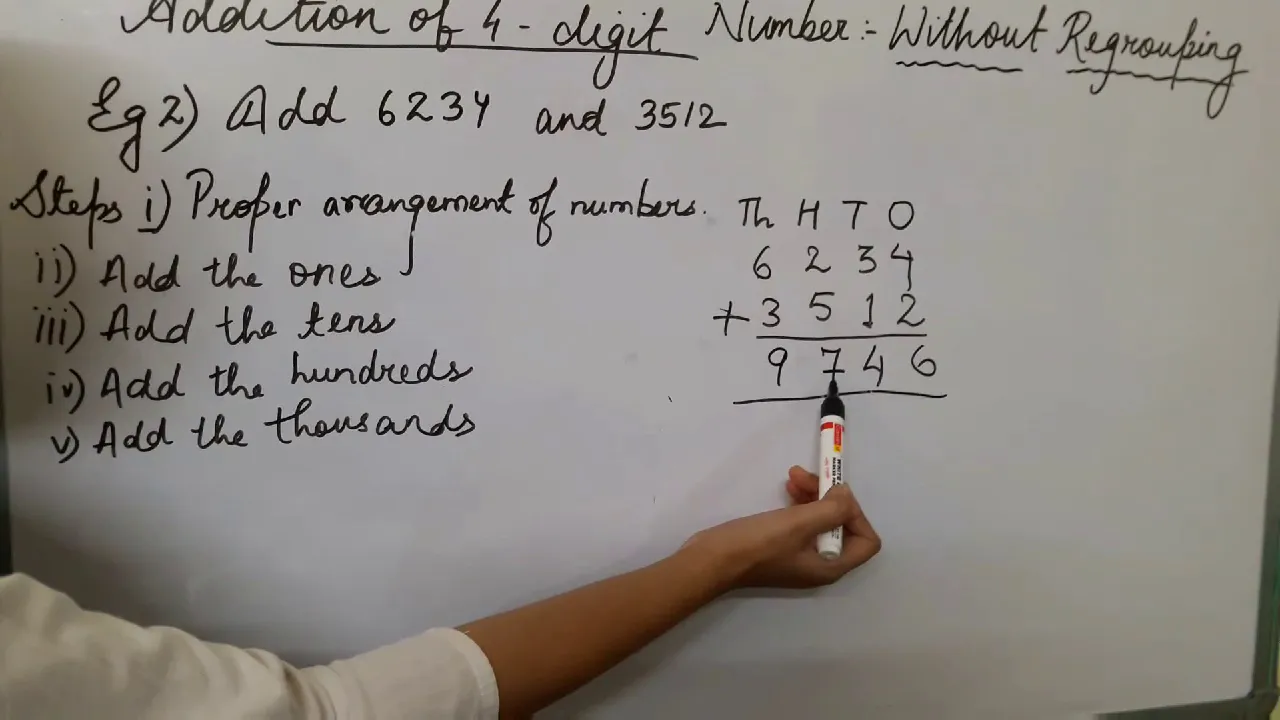 Addition of 4-digit Number:- Without Regrouping
Eg 2) Add 6234 and 3512
Steps i) Proper arrangement of numbers.
ii) Add the ones
iii) Add the tens
iv) Add the hundreds
v) Add the thousands
Th H T O
6 2 3 4
+ 3 5 1 2
9 7 4 6